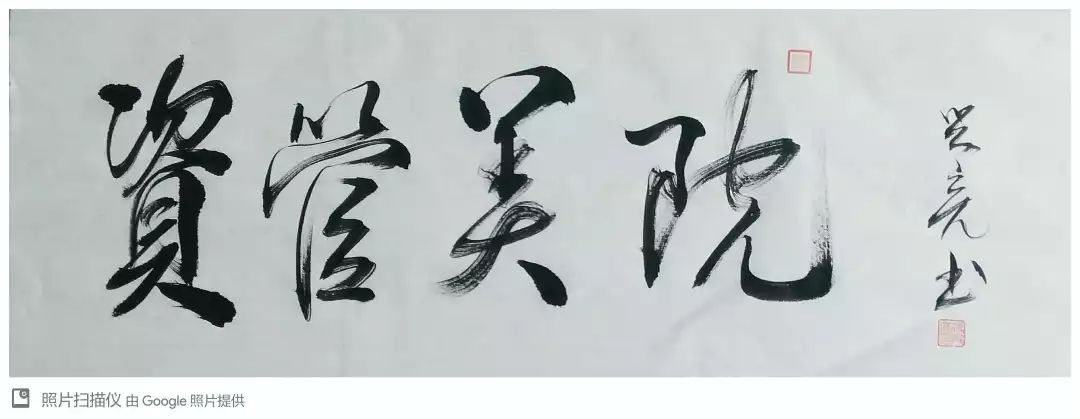 資管美院
亮书
照片扫描仪 由 Google 照片提供